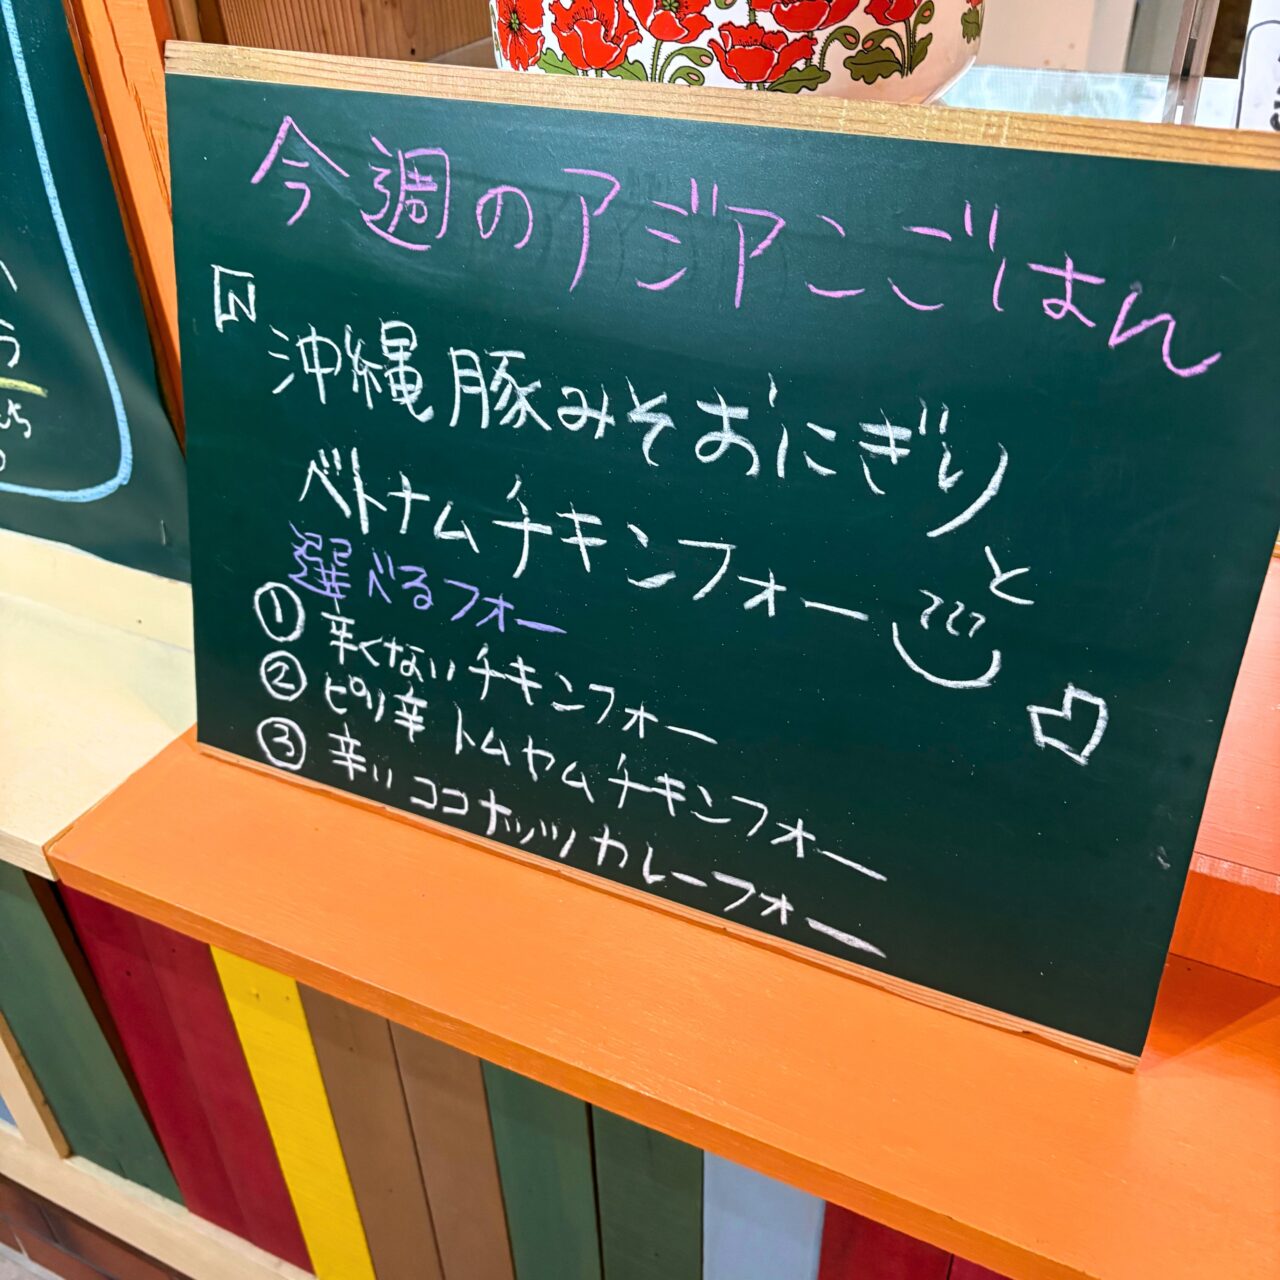 今週のアジアンごはん
沖縄豚みそおにぎり
と
ベトナムチキンフォー
選べるフォー
① 辛くないチキンフォー
② ピリ辛トムヤムチキンフォー
③ 辛いココナッツカレーフォー